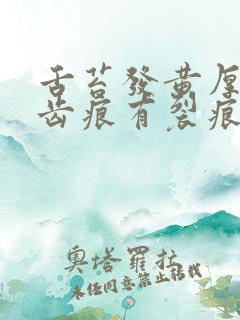 舌苔發黃厚
齒痕有裂痕
奧塔羅拉
未經同意禁止轉載